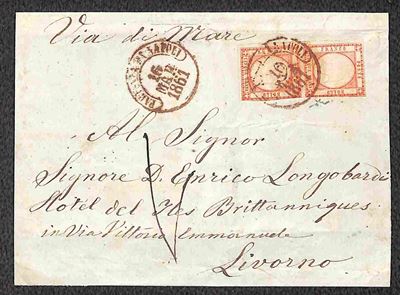 Via di Mare
NAPOLI
16
1861
NAPOLI
16
1861
FRANCO
Al Signor
Signore D. Enrico Longobardi
Hotel del Iles Brittanniques
in Via Vittorio Emmanuele
Livorno